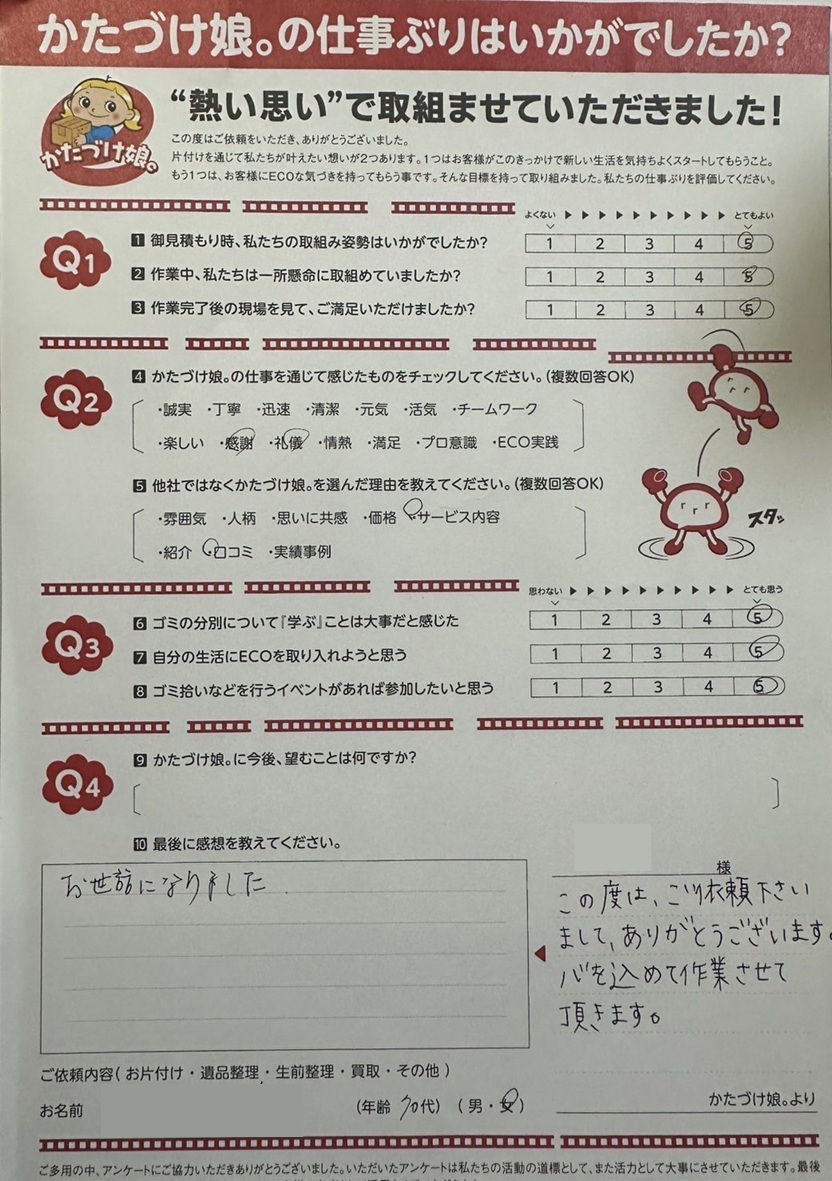 かたづけ娘。の仕事ぶりはいかがでしたか?
かたづけ娘。
“熱い思い”で取組ませていただきました!
この度はご依頼をいただき、ありがとうございました。
片付けを通じて私たちが叶えたい想いが2つあります。1つはお客様がこのきっかけで新しい生活を気持ちよくスタートしてもらうこと。
もう1つは、お客様にECOな気づきを持ってもらう事です。そんな目標を持って取り組みました。私たちの仕事ぶりを評価してください。
よくない ▶ ▶ ▶ ▶ ▶ ▶ ▶ ▶ ▶ ▶ とてもよい
Q1
1 御見積もり時、私たちの取組み姿勢はいかがでしたか? 1 2 3 4 5
2 作業中、私たちは一所懸命に取組めていましたか? 1 2 3 4 5
3 作業完了後の現場を見て、ご満足いただけましたか? 1 2 3 4 5
Q2
4 かたづけ娘。の仕事を通じて感じたものをチェックしてください。(複数回答OK)
・誠実 ・丁寧 ・迅速 ・清潔 ・元気 ・活気 ・チームワーク
・楽しい ・感謝 ・礼儀 ・情熱 ・満足 ・プロ意識 ・ECO実践
5 他社ではなくかたづけ娘。を選んだ理由を教えてください。(複数回答OK)
・雰囲気 ・人柄 ・思いに共感 ・価格 ・サービス内容
・紹介 ・口コミ ・実績事例
スタッ
思わない ▶ ▶ ▶ ▶ ▶ ▶ ▶ ▶ ▶ ▶ とても思う
Q3
6 ゴミの分別について『学ぶ』ことは大事だと感じた 1 2 3 4 5
7 自分の生活にECOを取り入れようと思う 1 2 3 4 5
8 ゴミ拾いなどを行うイベントがあれば参加したいと思う 1 2 3 4 5
Q4
9 かたづけ娘。に今後、望むことは何ですか?
10 最後に感想を教えてください。
お世話になりました
様
この度は、ご依頼下さい
まして、ありがとうございます。
心を込めて作業させて
頂きます。
かたづけ娘。より
ご依頼内容(お片付け・遺品整理・生前整理・買取・その他)
お名前 (年齢 70代) (男・女)
ご多用の中、アンケートにご協力いただきありがとうございました。いただいたアンケートは私たちの活動の道標として、また活力として大事にさせていただきます。最後